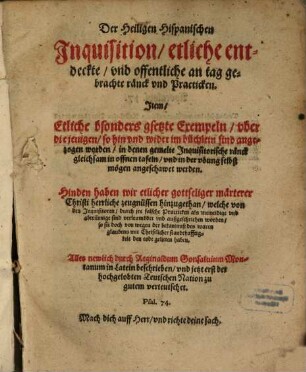 Der Heiligen Hispanischen
Inquisition / etliche ent-
deckte / vnd offentliche an tag ge-
brachte ränck vnd Practicken.
Item /
Etliche bsonders gsetzte Exempeln / vber
die jenigen / so hin vnd wider im büchlein sind ange-
zogen worden / in denen gemelte Inquisitorische ränck
gleichsam in offnen tafeln / vnd in der vbung selbst
mögen angeschawet werden.
Hinden haben wir etlicher gottseliger märterer
Christi herrliche zeugnüssen hinzugethan / welche von
den Inquisitoren / durch jre falsche Practicken als
sind verleumbdet vnd außgeschrien worden /
so sie doch von wegen der bekantnuß des waren
glaubens vnd Christlicher standthafftig-
keit den todt gelitten haben.
Alles newlich durch Reginaldum Gonsaluium Mon-
tanum in Latein beschrieben / vnd jetz erst der
hochgelobten Teutschen Nation zu
gutem verteutschet.
Psal. 74.
Mach dich auff Herr / vnd richte deine sach.